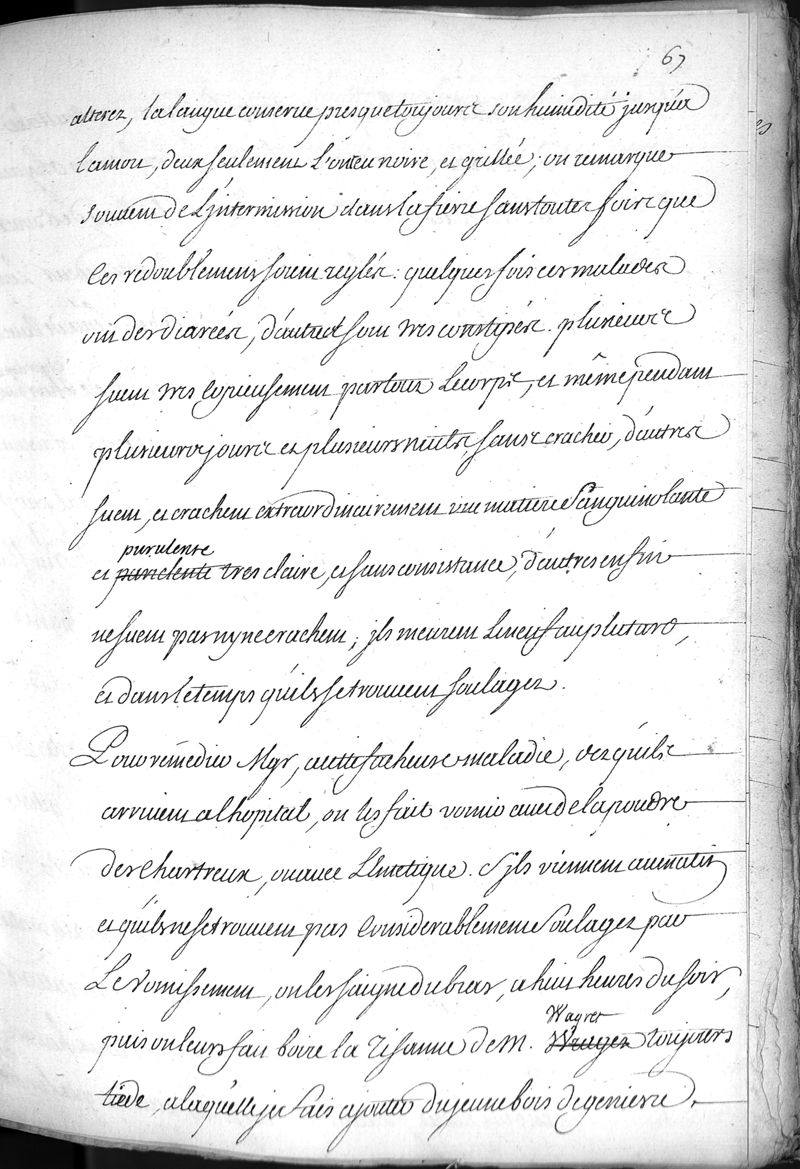 67
alterez, la langue conserve presque toujours son humidité jusqu'a
la mort, deux seulement L'ont eu noire, et grillée; on remarque
souvent de L'intermission dans la fiévre sans toutes fois que
les redoublemens soient reglés: quelques fois ces malades
ont des diarées, d'autres sont tres constipés. plusieurs
suent tres copieusement par tout Le corps, et même pendant
plusieurs jours et plusieurs nuits, sans cracher, d'autres
suent, et crachent extraordinairement une matiere Sanguinolante
purulente
et purulente tres claire, et sans consistance, d'autres enfin
ne suent pas ny ne crachent; jls meurent Le neuf au plutard,
et dans le temps qu'ils se trouvent soulagez.
Pour remedier Mgr, a cette facheuse maladie, dez qu'ils
arrivent a l'hopital, on les fait vomir avec de la poudre
des Chartreux, ou avec L'Emetique. S'jls viennent au matin
et qu'ils ne se trouvent pas Considerablement Soulagez par
Le Vomissement, on les saigne du bras, a huit heures du soir,
Wagret
puis on leurs fait boire la Tisanne de M. Wragez toujours
tiéde, a laquelle je fais ajouter du jeune bois de geniévre.